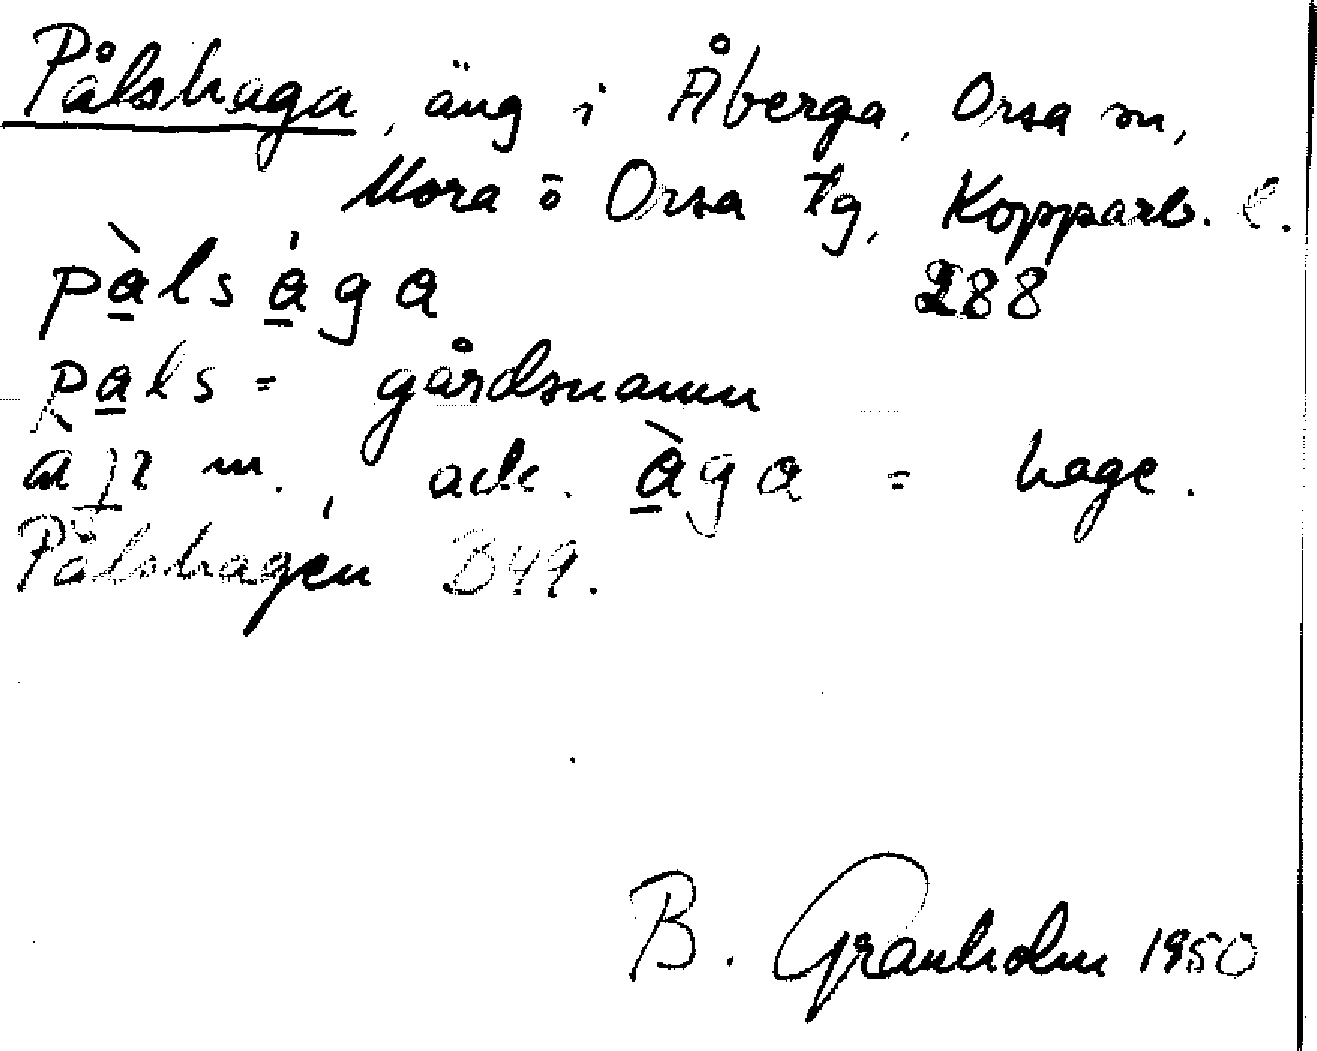 Pålshaga, äng i Åberga, Orsa sn,
Mora o Orsa tg, Kopparb. l.
pàlsága 288
pals = gårdsnamn
m., ack. àga = hage.
Pålshagen B49.
B. Granholm 1950